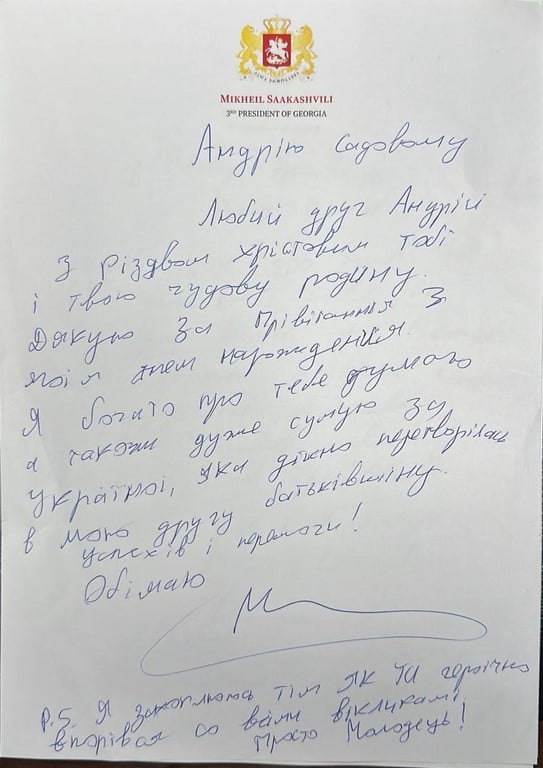 MIKHEIL SAAKASHVILI
3RD PRESIDENT OF GEORGIA
Андрію Садовому
Любий друг Андрій
З Різдвом хрістовим тобі
і твою чудову родину.
Дякую за Прівітання з
моїм днем народження.
Я богато про тебе думаю
а також дуже сумую за
Україної, яка дівно перетворілась
в мою другу батьківшіну.
успєхів і перемоги!
Обімаю
P.S. Я захоплююсь тім як ти героїчно
впорівая со вами вікликамі.
Просто Молодець!